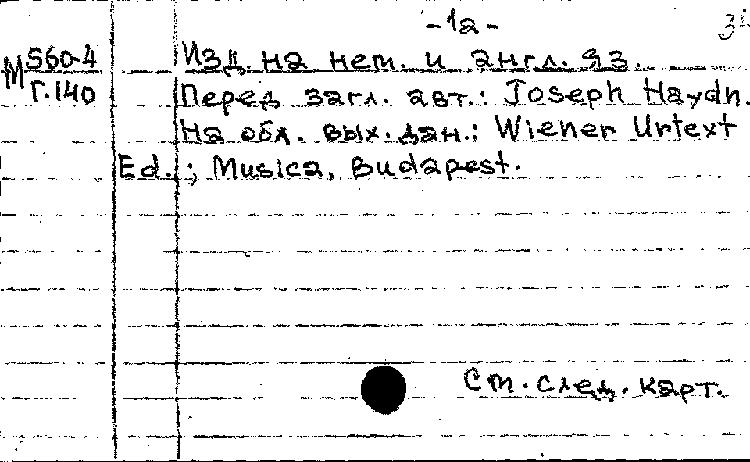 -1а-
М 560-4
Г.140
Изд. на нем. и англ. яз.
Перед загл. авт.: Joseph Haydn.
На обл. вых. дан.: Wiener Urtext
Ed.; Musica, Budapest.
См. след. карт.